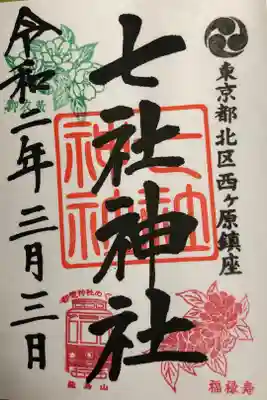 東京都北区西ヶ原鎮座
七社神社
令和二年三月三日
七社神社
飛鳥山
福禄寿